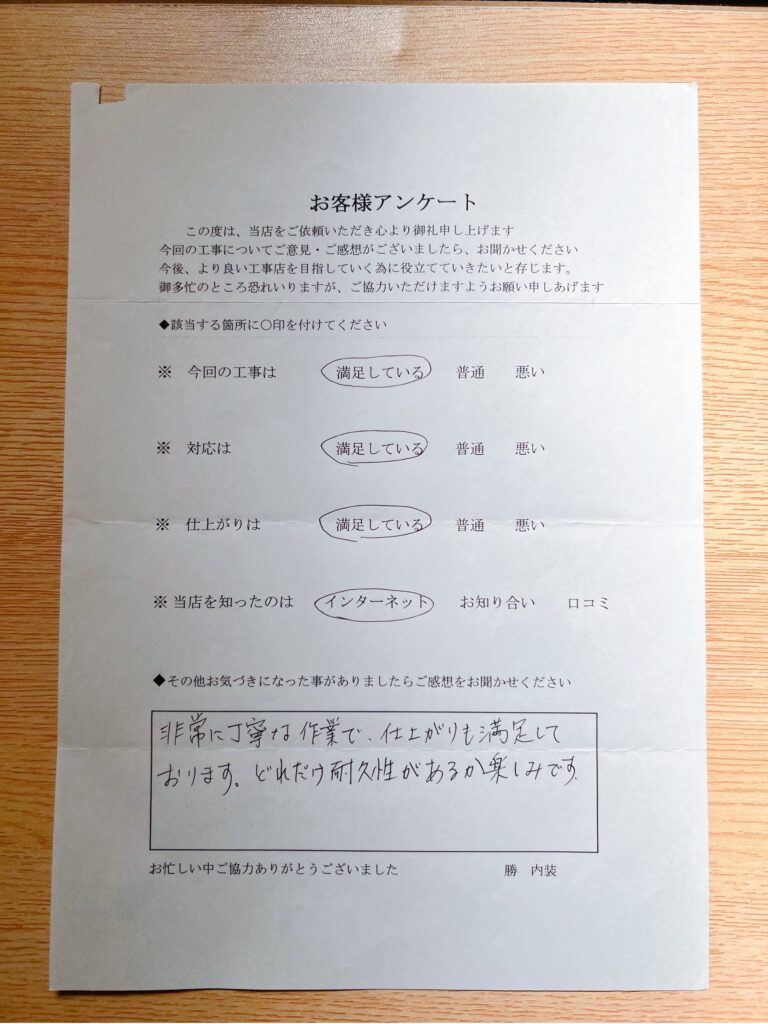 お客様アンケート
この度は、当店をご依頼いただき心より御礼申し上げます
今回の工事についてご意見・ご感想がございましたら、お聞かせください
今後、より良い工事店を目指していく為に役立てていきたいと存じます。
御多忙のところ恐れいりますが、ご協力いただけますようお願い申しあげます
◆該当する箇所に〇印を付けてください
※ 今回の工事は 満足している 普通 悪い
※ 対応は 満足している 普通 悪い
※ 仕上がりは 満足している 普通 悪い
※ 当店を知ったのは インターネット お知り合い 口コミ
◆その他お気づきになった事がありましたらご感想をお聞かせください
非常に丁寧な作業で、仕上がりも満足して
おります。どれだけ耐久性があるか楽しみです
お忙しい中ご協力ありがとうございました 勝 内装